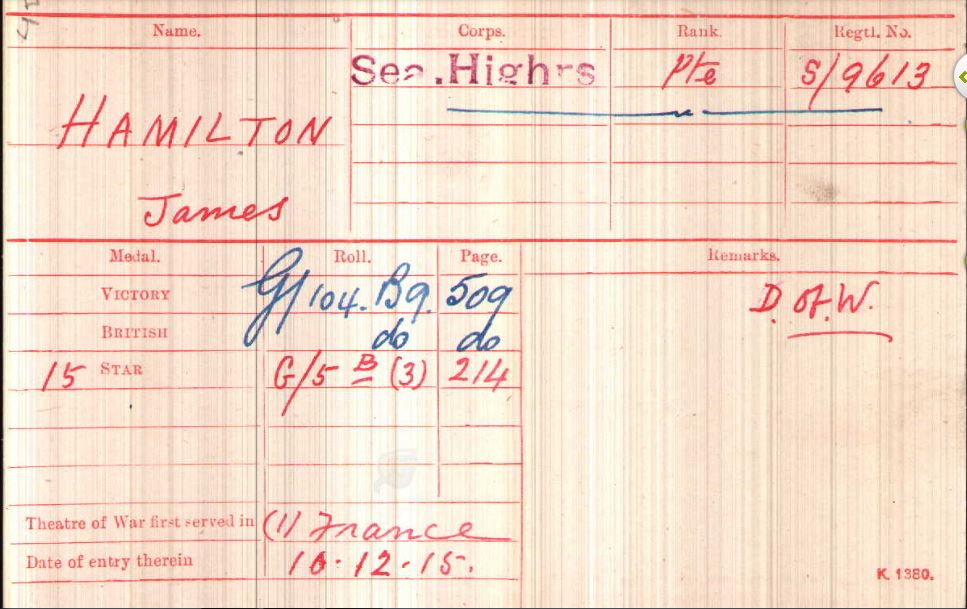 Name. Corps. Rank. Regtl. No.
Sea. Highrs Pte S/9613
HAMILTON
James
Medal. Roll. Page. Remarks.
VICTORY G/104. B9. 509 D. of. W.
BRITISH do do
15 STAR G/5 B (3) 214
Theatre of War first served in (1) France
Date of entry therein 10.12.15.
K. 1380.